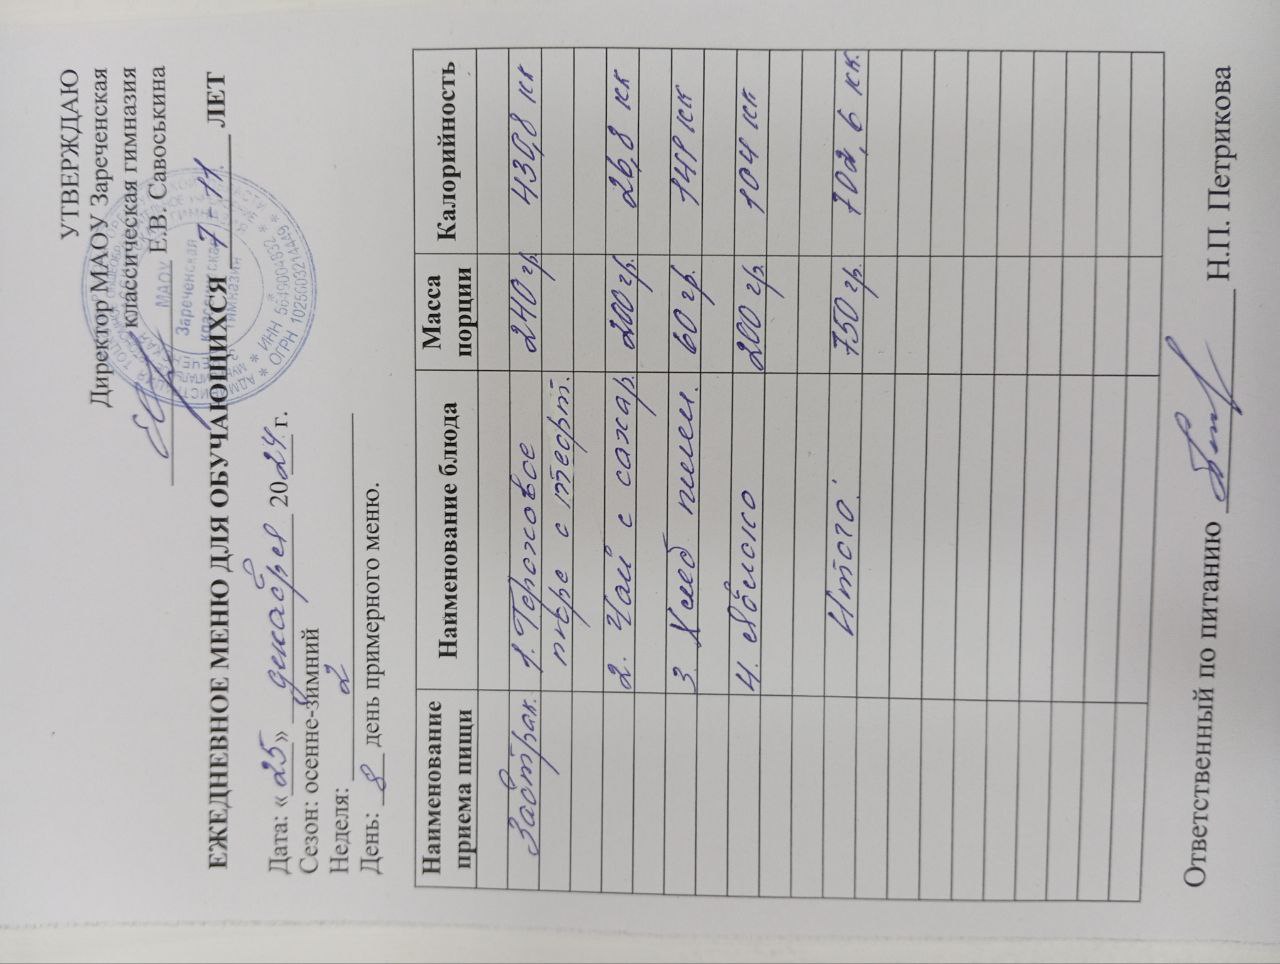 УТВЕРЖДАЮ
Директор МАОУ Зареченская
классическая гимназия
Е.В. Савоськина
МАОУ
Зареченская
классическая
гимназия
* ИНН 5649004632 *
* ОГРН 1025603214449 *
ЕЖЕДНЕВНОЕ МЕНЮ ДЛЯ ОБУЧАЮЩИХСЯ 7-11 ЛЕТ
Дата: «25» декабря 2024 г.
Сезон: осенне-зимний
Неделя: 2
День: 8 день примерного меню.
Наименование приема пищи Наименование блюда Масса порции Калорийность
Завтрак. 1. Гороховое 240 гр. 430,8 кк
пюре с тефт.
2. Чай с сахар. 200 гр. 26,8 кк
3. Хлеб пшен. 60 гр. 141 кк
4. яблоко 200 гр. 104 кк
Итого: 750 гр. 702,6 кк.
Ответственный по питанию Н.П. Петрикова